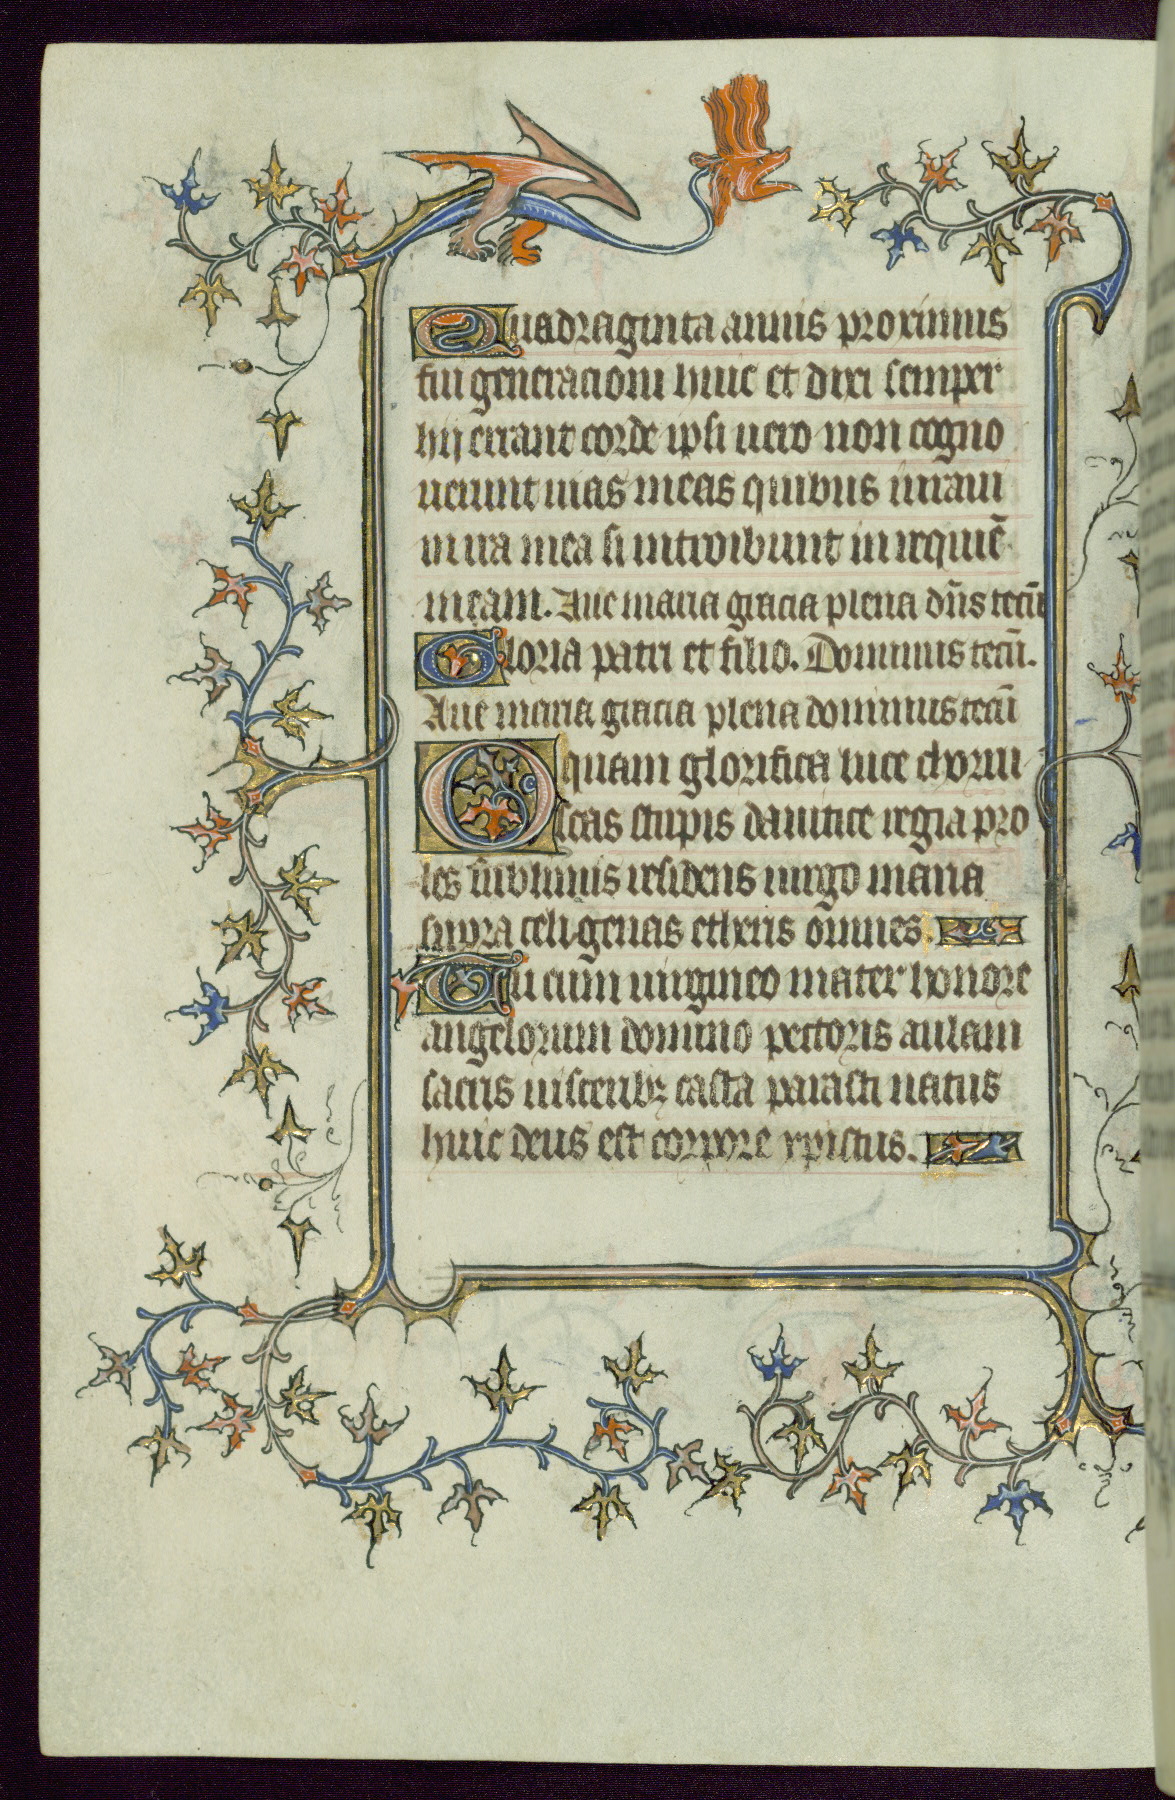 Quadraginta annis proximus
fui generacioni huic et dixi semper
hij errant corde ipsi uero non cogno
uerunt uias meas quibus iuraui
in ira mea si introibunt in requiē
meam. Aue maria gracia plena dn̄s tecū
Gloria patri et filio. Dominus tecū.
Aue maria gracia plena dominus tecū
O quam glorifica luce chorus
cas stirpis dauitice regia pro
les sublimis residens uirgo maria
supra celigenas etheris omnes.
Tu cum uirgineo mater honore
angelorum domino pectoris aulam
sacris uisceribꝫ casta parasti natus
huic deus est corpore xpistus.